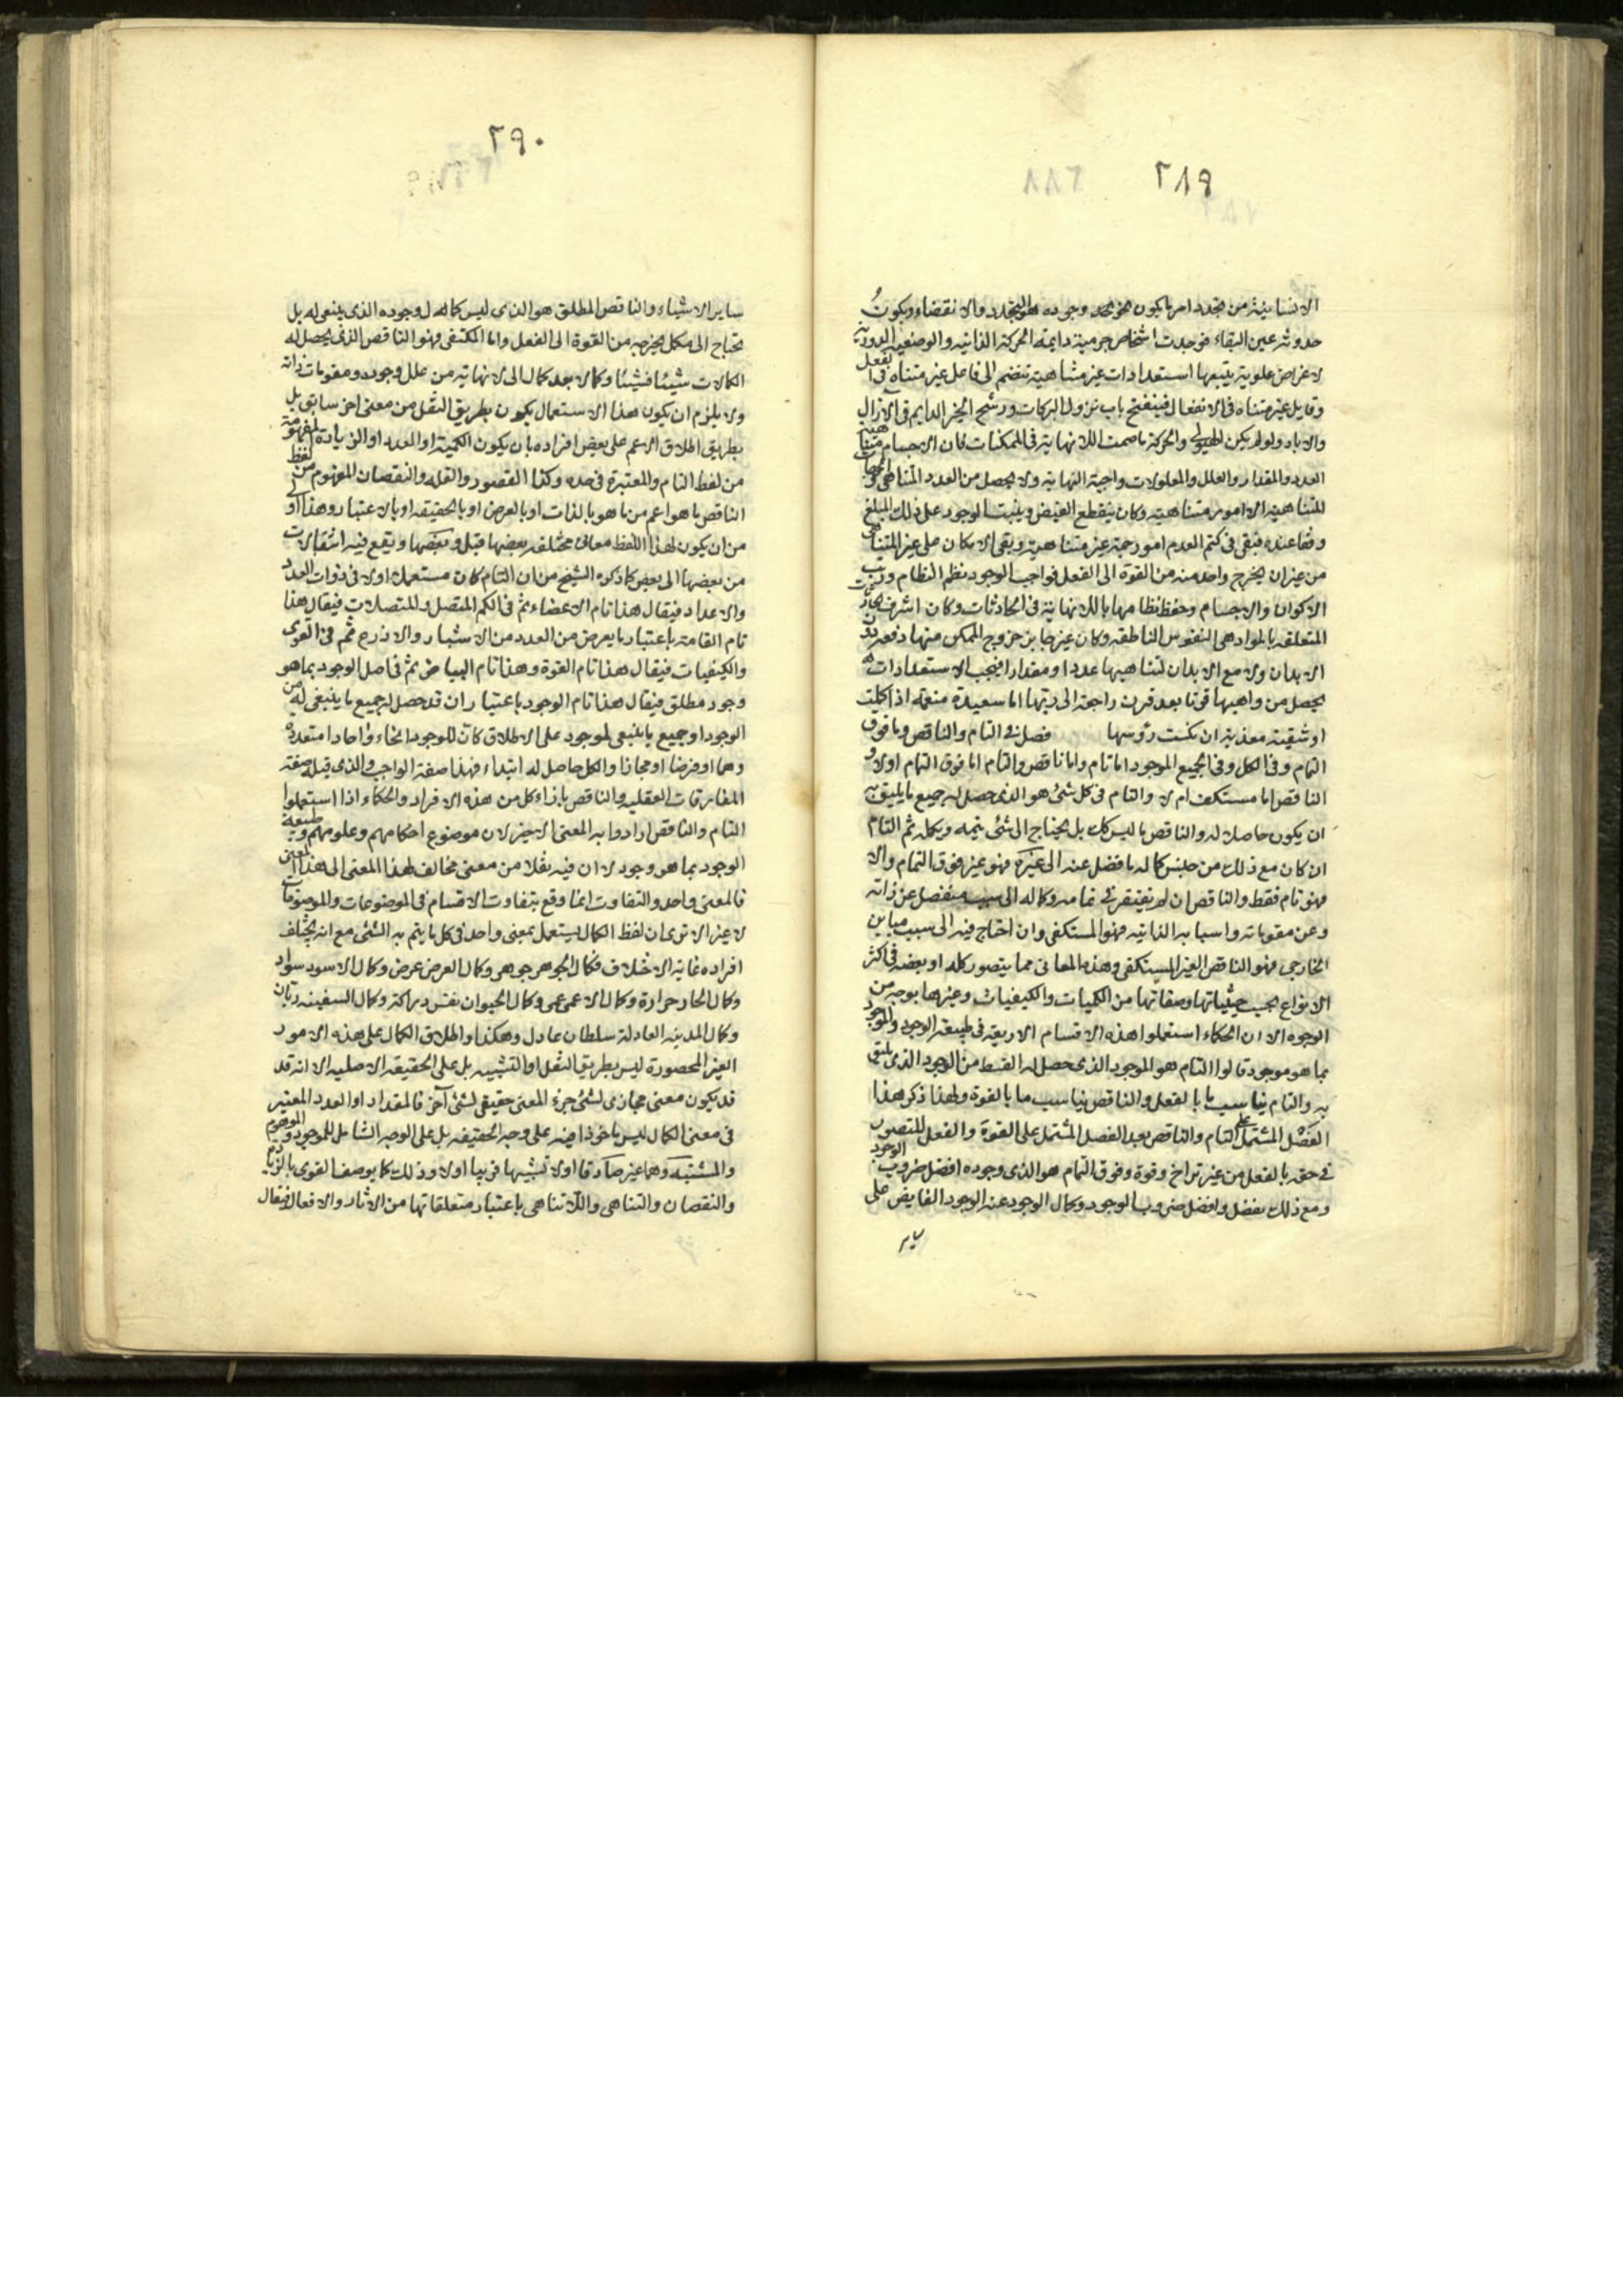 ٢٨٩
الانسانية من تجدد امر ما يكون نحو وجوده هو التجدد والانقضاء ويكون
حدوثه عين البقاء فوجدت اشخاص جرمية دايمة الحركة الذاتية والوضعية الدورية
لاغراض علوية يتبعها استعدادات غير متناهية تنضم الى فاعل غير متناه فى الفعل
وقابل غير متناه فى الانفعال فينفتح باب نزول البركات ورشح الخير الدايم فى الآزال
والاباد ولو لم يكن الهيولى والحركة ما صحت اللانهاية فى الممكنات فان الاجسام متناهية
العدد والمقدار والعلل والمعلولات واجبة النهاية ولا يحصل من العدد المتناهى والجهات
المتناهية الا امور متناهية وكان ينقطع الفيض ويثبت الوجود على ذلك المبلغ
وقفا عنده فبقى فى كتم العدم امور جمة غير متناهية ويبقى الامكان على غير المتناهى
من غير ان يخرج واحد منه من القوة الى الفعل فواجب الوجود نظم النظام ورتب
الاكوان والاجسام وحفظ نظامها باللانهاية فى الحادثات وكان اشرف
المتعلقة بالمواد هى النفوس الناطقة وكان غير جايز خروج الممكن منها دفعة دون
الابدان ولا مع الابدان لتناهيها عددا ومقدارا فبحسب الاستعدادات
يحصل من واهبها قرنا بعد قرن راجعة الى ربها اما سعيدة منعمة اذا كملت
او شقية معذبة ان نكست رؤسها فصل فى التام والناقص وما فوق
التمام وفى الكل وفى الجميع الموجود اما تام واما ناقص والتام اما فوق التمام اولا و
الناقص اما مستكف ام لا والتام فى كل شئ هو الذى حصل له جميع ما يليق به
ان يكون حاصلا له والناقص ما ليس كك بل يحتاج الى شئ يتمه ويكمله ثم التام
ان كان مع ذلك من جنس كماله ما فضل عنه الى غيره فهو غير فوق التمام والا
فهو تام فقط والناقص ان لم يفتقر فى تمامه وكماله الى سبب منفصل عن ذاته
وعن مقوماته واسبابه الذاتية فهو المستكفى وان احتاج فيه الى سبب مباين
الخارجى فهو الناقص الغير المستكفى وهذه المعانى مما يتصور كله او بعضه فى اكثر
الانواع بحسب حيثياتها وصفاتها من الكميات والكيفيات وغيرها بوجه من
الوجوه الا ان الحكماء استعملوا هذه الاقسام الاربعة فى طبيعة الوجود والموجود
بما هو موجود قالوا التام هو الموجود الذى حصل له القسط من الوجود الذى يليق
به والتام يناسب ما بالفعل والناقص يناسب ما بالقوة ولهذا ذكر هذا
الفصل المشتمل على التام والناقص بعد الفصل المشتمل على القوة والفعل للتصور
فى حقه بالفعل من غير تراخ وقوة وفوق التمام هو الذى وجوده افضل ضروب الوجود
ومع ذلك يفضل وافضل ضروب الوجود وكمال الوجود عنه الوجود الفايض على
ساير
٢٩٠
ساير الاشياء والناقص المطلق هو الذى ليس كماله لوجوده الذى ينبغى له بل
تحتاج الى مكمل يخرجه من القوة الى الفعل واما المكتفى فهو الناقص الذى يحصل له
الكمالات شيئا فشيئا وكمالا بعد كمال الى لا نهاية من علل وجوده ومقومات ذاته
ولا يلزم ان يكون هذا الاستعمال يكون بطريق النقل من معنى اخر سابق بل
بطريق اطلاق الاعم على بعض افراده بان يكون الكمية او العدد او الزيادة المفهومة
من لفظ التام والمعتبرة فى حده وكذا القصور والقلة والنقصان المفهوم من لفظ
الناقص ما هو اعم من ما هو بالذات او بالعرض او بالحقيقة او بالاعتبار وهذا اولى
من ان يكون لهذا اللفظ معانى مختلفة بعضها قبل وبعضها ويقع فيه انتقالات
من بعضها الى بعض كما ذكره الشيخ من ان التام كان مستعملا اولا فى ذوات العدد
والاعداد فيقال هذا تام الاعضاء ثم فى الكم المتصل والمتصلات فيقال هذا
تام القامة باعتبار ما يعرض من العدد من الاشبار والاذرع ثم فى القوى
والكيفيات فيقال هذا تام القوة وهذا تام البياض ثم فى اصل الوجود بما هو
وجود مطلق فيقال هذا تام الوجود باعتبار ان قد حصل له جميع ما ينبغى له من
الوجود او جميع ما ينبغى لموجود على الاطلاق كان للوجود انحاء واحادا متعددة
وهما او فرضا او مجازا والكل حاصل له ابتداء فهذا صفة الواجب والذى قبله صفة
المفارقات العقلية والناقص بازاء كل من هذه الافراد والحكماء اذا استعملوا
التام والناقص ارادوا به المعنى الاخير لان موضوع احكامهم وعلومهم طبيعة
الوجود بما هو وجود لا ان فيه نقلا من معنى مخالف لهذا المعنى الى هذا المعنى
فالمعنى واحد والتفاوت انما وقع بتفاوت الاقسام فى الموضوعات والموصوفات
لا غير الا ترى ان لفظ الكمال يستعمل بمعنى واحد فى كل ما يتم به الشئ مع انه يختلف
افراده غاية الاختلاف فكمال الجوهر جوهر وكمال العرض عرض وكمال الاسود سواد
وكمال الحار حرارة وكمال الاعمى عمى وكمال الحيوان نفس دراكة وكمال السفينة ربان
وكمال المدينة العادلة سلطان عادل وهكذا واطلاق الكمال على هذه الامور
الغير المحصورة ليس بطريق النقل او التشبيه بل على الحقيقة الاصلية الا انه قد
قد يكون معنى مجازى لشئ جزء المعنى حقيقى لشئ آخر فالمقدار او العدد المعتبر
فى معنى الكمال ليس ماخوذا فيه على وجه الحقيقة بل على الوجه الشامل للموجود والموهوم
والمشتبه وهما غير صادقا اولا تشبيها قريبا اولا وذلك كما يوصف القوى بالزيادة
والنقصان والتناهى واللاتناهى باعتبار متعلقاتها من الاثار والافعال فيقال